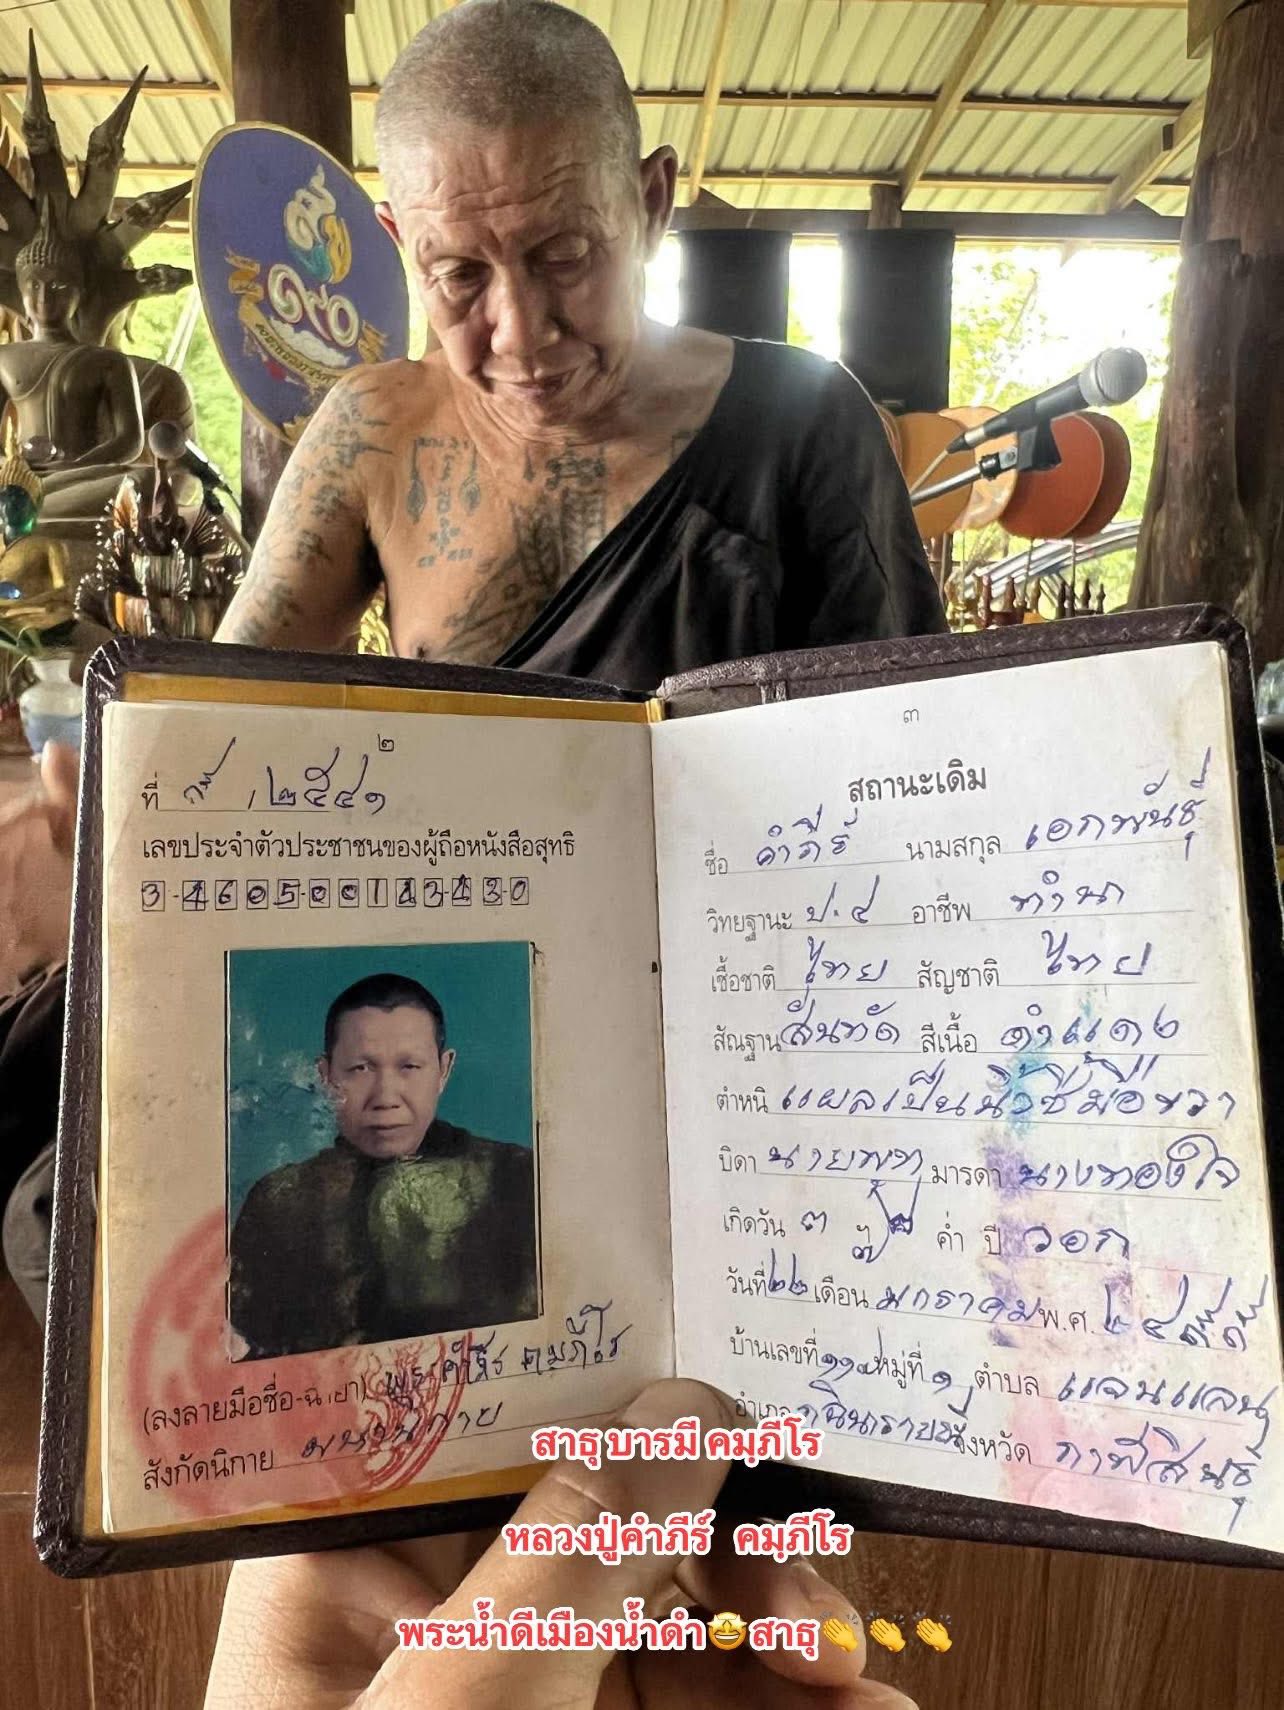 ๑๙๐
๒
ที่ / ๒๕๔๑
เลขประจำตัวประชาชนของผู้ถือหนังสือสุทธิ
(ลงลายมือชื่อ-ฉายา) พระคำภีร์ คมฺภีโร
สังกัดนิกาย มหานิกาย
๓
สถานะเดิม
ชื่อ คำภีร์ นามสกุล เอกพันธุ์
วิทยฐานะ ป.๔ อาชีพ ทำนา
เชื้อชาติ ไทย สัญชาติ ไทย
สัณฐาน สันทัด สีเนื้อ ดำแดง
ตำหนิ แผลเป็นนิ้วชี้มือขวา
บิดา นายพุท มารดา นางทองใจ
เกิดวัน ๓ ค่ำ ปี วอก
วันที่ ๒๒ เดือน มกราคม พ.ศ. ๒๔๙๙
บ้านเลขที่ หมู่ที่ ๑ ตำบล แจนแลน
อำเภอ กุฉินารายณ์ จังหวัด กาฬสินธุ์
สาธุ บารมี คมฺภีโร
หลวงปู่คำภีร์ คมฺภีโร
พระน้ำดีเมืองน้ำดำ🤩สาธุ👏👏👏